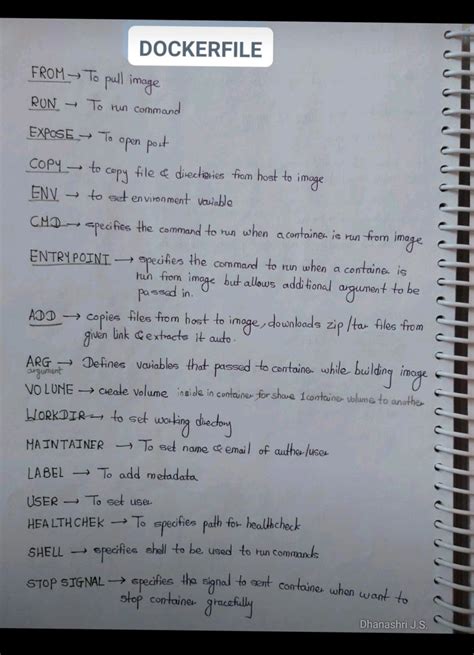 DOCKERFILE
FROM → To pull image
RUN → To run command
EXPOSE → To open port
COPY → to copy file & directories from host to image
ENV → to set environment variable
CMD → specifies the command to run when a container is run from image
ENTRYPOINT → specifies the command to run when a container is
run from image but allows additional argument to be
passed in.
ADD → copies files from host to image, downloads zip/tar files from
given link & extracts it auto.
ARG → Defines variables that passed to container while building image
argument
VOLUME → create volume inside in container for share 1 container volume to another
WORKDIR → to set working directory
MAINTAINER → To set name & email of author/user
LABEL → To add metadata
USER → To set user
HEALTHCHEK → To specifies path for healthcheck
SHELL → specifies shell to be used to run commands
STOP SIGNAL → specifies the signal to sent container when want to
stop container gracefully
Dhanashri J.S.